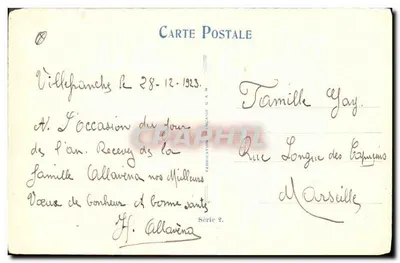 CARTE POSTALE
Villefranche le 28-12-1923
A L'occasion du jour
de l'an. Recevez de la
famille Allavena nos Meilleurs
Vœux de bonheur et bonne santé
H. Allavéna
Famille Gay.
Rue Longue des Capucins
Marseille
Série 2.
CRAPHTL